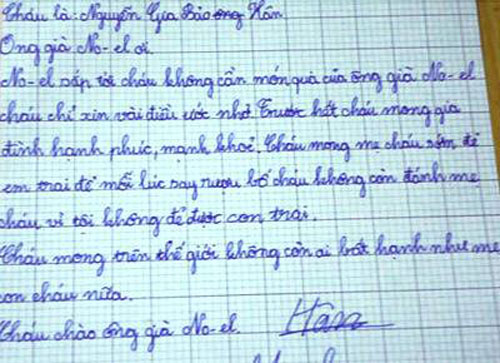 Cháu là: Nguyễn Gia Bảo Ngọc Hân
Ông già No-el ơi.
No-el sắp tới cháu không cần món quà của ông già No-el
cháu chỉ xin vài điều ước nhỏ. Trước hết cháu mong gia
đình hạnh phúc, mạnh khoẻ. Cháu mong mẹ cháu sớm đẻ
em trai để mỗi lúc say rượu bố cháu không còn đánh mẹ
cháu vì tội không đẻ được con trai.
Cháu mong trên thế giới không còn ai bất hạnh như mẹ
con cháu nữa.
Cháu chào ông già No-el. Hân